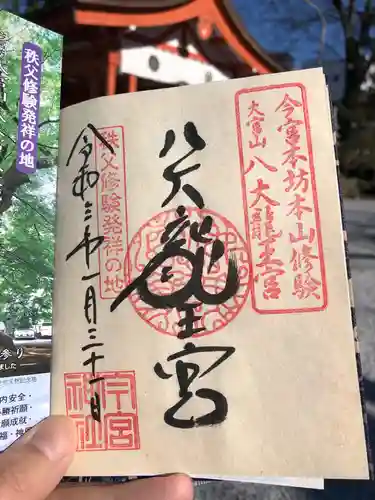 今宮本坊本山修験
大宮山
八大龍王宮
八大龍王宮
秩父修験発祥の地
令和三年一月三十一日
今宮
神社
秩父修験発祥の地
内安全・
勝祈願・
願成就・